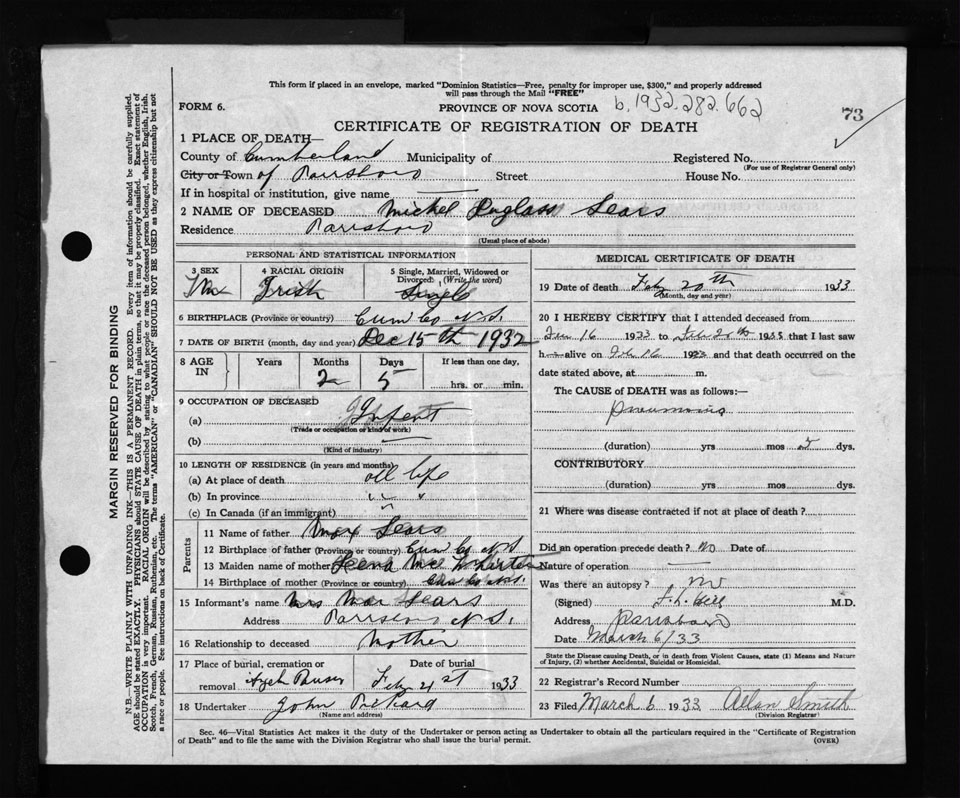 This form if placed in an envelope, marked "Dominion Statistics—Free, penalty for improper use, $300," and properly addressed
will pass through the Mail "FREE"
FORM 6.
PROVINCE OF NOVA SCOTIA b.1932.282.662
73
CERTIFICATE OF REGISTRATION OF DEATH
1 PLACE OF DEATH—
County of Cumberland Municipality of Registered No.
(For use of Registrar General only)
City or Town of Parrsboro Street House No.
If in hospital or institution, give name
2 NAME OF DECEASED Mickel Duglass Sears
Residence Parrsboro
(Usual place of abode)
PERSONAL AND STATISTICAL INFORMATION
3 SEX 4 RACIAL ORIGIN 5 Single, Married, Widowed or
Divorced: (Write the word)
Irish Single
6 BIRTHPLACE (Province or country) Cum Co N.S.
7 DATE OF BIRTH (month, day and year) Dec 15th 1932
8 AGE IN Years Months Days If less than one day,
2 5 hrs. or min.
9 OCCUPATION OF DECEASED
(a) Infent
(Trade or occupation or kind of work)
(b)
(Kind of industry)
10 LENGTH OF RESIDENCE (in years and months)
(a) At place of death all life
(b) In province " "
(c) In Canada (if an immigrant) "
Parents
11 Name of father Max Sears
12 Birthplace of father (Province or country) Cum Co N.S
13 Maiden name of mother Leena
14 Birthplace of mother (Province or country) Cum Co N.S.
15 Informant's name Mrs Max Sears
Address Parrsboro N.S.
16 Relationship to deceased Mother
17 Place of burial, cremation or Date of burial
removal Feb 21st 1933
18 Undertaker John
(Name and address)
MEDICAL CERTIFICATE OF DEATH
19 Date of death Feb 20th 1933
(Month, day and year)
20 I HEREBY CERTIFY that I attended deceased from
16 1933 to Feb 20th 1933 that I last saw
h alive on Feb 16 1933 and that death occurred on the
date stated above, at m.
The CAUSE of DEATH was as follows:—
Pneumonia
(duration) yrs mos dys.
CONTRIBUTORY
(duration) yrs mos dys.
21 Where was disease contracted if not at place of death?
Did an operation precede death? No Date of
Nature of operation
Was there an autopsy? no
(Signed) M.D.
Address Parrsboro
Date March 6/33
State the Disease causing Death, or in death from Violent Causes, state (1) Means and Nature
of Injury, (2) whether Accidental, Suicidal or Homicidal.
22 Registrar's Record Number
23 Filed March 6 1933 Allan Smith
(Division Registrar)
Sec. 46—Vital Statistics Act makes it the duty of the Undertaker or person acting as Undertaker to obtain all the particulars required in the "Certificate of Registration
of Death" and to file the same with the Division Registrar who shall issue the burial permit. (OVER)
MARGIN RESERVED FOR BINDING
N.B.—WRITE PLAINLY WITH UNFADING INK—THIS IS A PERMANENT RECORD. Every item of information should be carefully supplied.
AGE should be stated EXACTLY. PHYSICIANS should STATE CAUSE OF DEATH in plain terms, so that it may be properly classified. Exact statement of
OCCUPATION is very important. RACIAL ORIGIN will be described by stating to what people or race the deceased person belonged, whether English, Irish,
Scotch, French, German, Russian, Ruthenian, etc. The terms "AMERICAN" or "CANADIAN" SHOULD NOT BE USED as they express citizenship but not
a race or people. See instructions on back of Certificate.